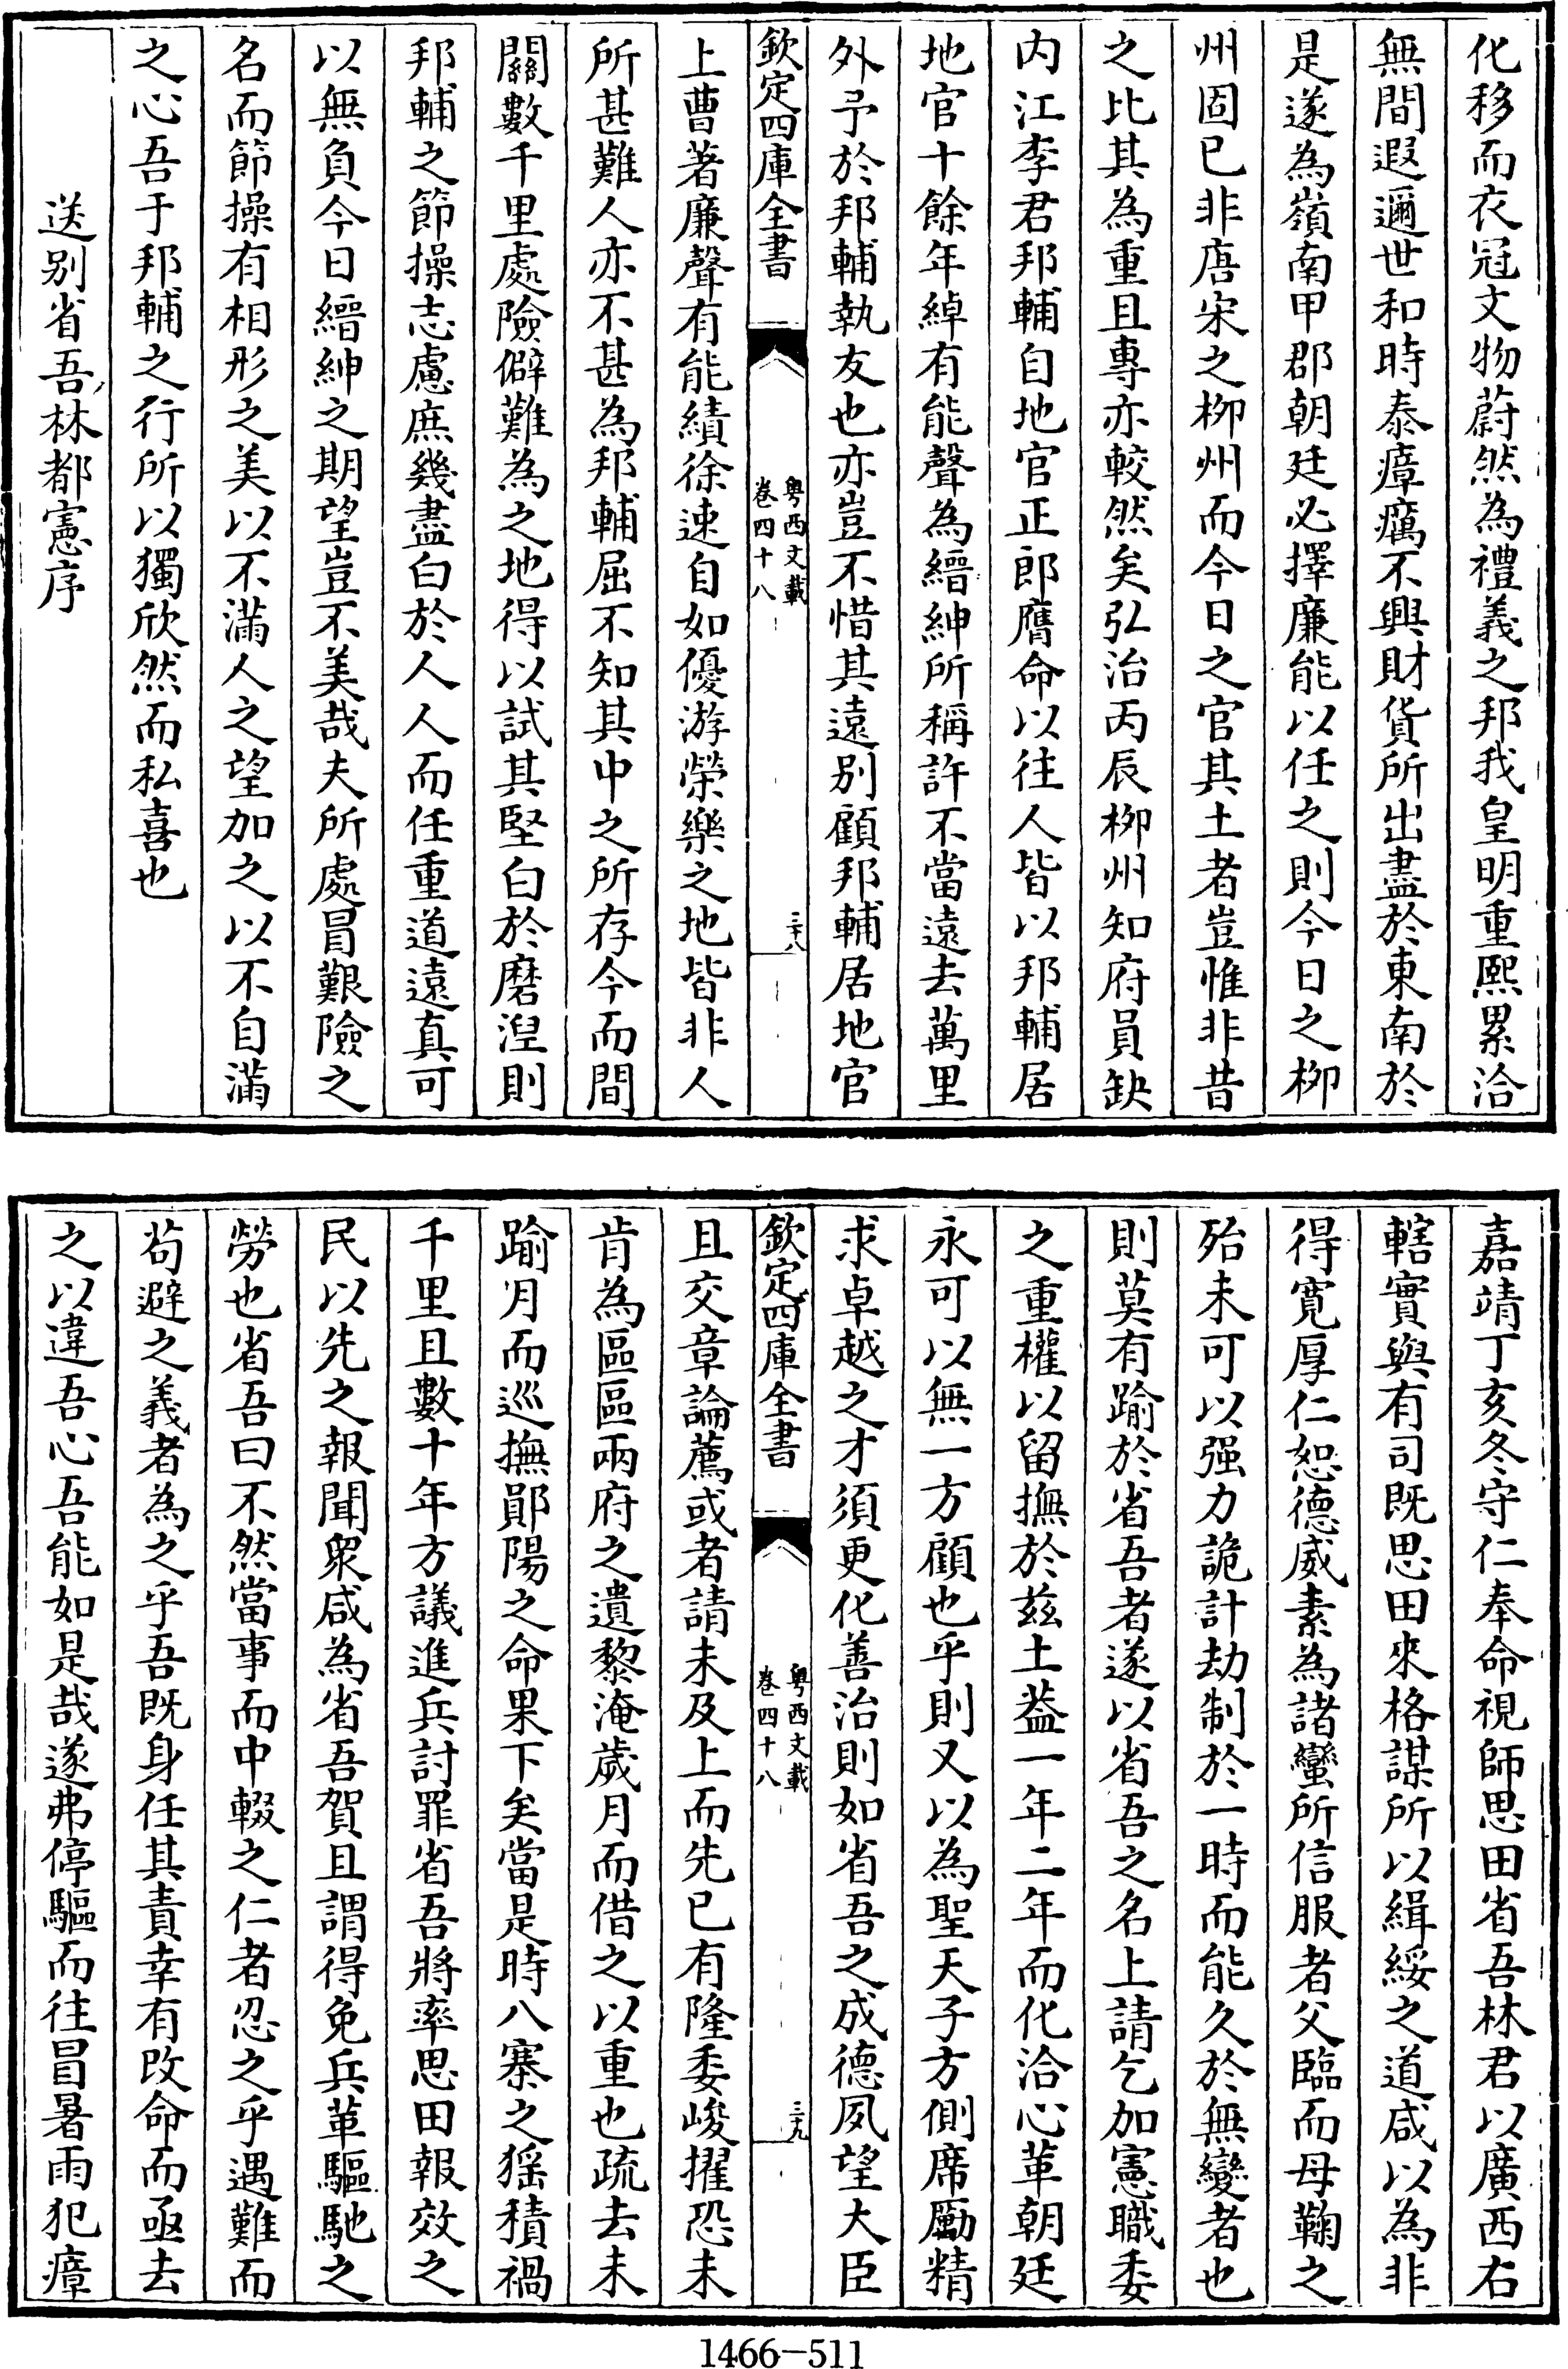 化移而衣冠文物蔚然為禮義之邦我皇明重熙累洽
無間遐邇世和時泰瘴癘不興財貨所出盡於東南於
是遂為嶺南甲郡朝廷必擇廉能以任之則今日之柳
州固已非唐宋之柳州而今日之官其土者豈惟非昔
之比其為重且專亦較然矣弘治丙辰柳州知府員缺
内江李君邦輔自地官正郎膺命以往人皆以邦輔居
地官十餘年綽有能聲為縉紳所稱許不當遠去萬里
外予於邦輔執友也亦豈不惜其遠别顧邦輔居地官
欽定四庫全書
粤西文載
卷四十八
三十八
上曹著廉聲有能績徐速自如優游榮樂之地皆非人
所甚難人亦不甚為邦輔屈不知其中之所存今而間
關數千里處險僻難為之地得以試其堅白於磨湼則
邦輔之節操志慮庶幾盡白於人人而任重道遠真可
以無負今日縉紳之期望豈不美哉夫所處冒艱險之
名而節操有相形之美以不滿人之望加之以不自滿
之心吾于邦輔之行所以獨欣然而私喜也
送别省吾林都憲序
嘉靖丁亥冬守仁奉命視師思田省吾林君以廣西右
轄實與有司既思田來格謀所以緝綏之道咸以為非
得寛厚仁恕德威素為諸蠻所信服者父臨而母鞠之
殆未可以强力詭計劫制於一時而能久於無變者也
則莫有踰於省吾者遂以省吾之名上請乞加憲職委
之重權以留撫於兹土葢一年二年而化洽心革朝廷
永可以無一方顧也乎則又以為聖天子方側席勵精
求卓越之才須更化善治則如省吾之成德夙望大臣
欽定四庫全書
粤西文載
卷四十八
三十九
且交章論薦或者請未及上而先已有隆委峻擢恐未
肯為區區兩府之遺黎淹歲月而借之以重也疏去未
踰月而巡撫鄖陽之命果下矣當是時八寨之猺積禍
千里且數十年方議進兵討罪省吾將率思田報效之
民以先之報聞衆咸為省吾賀且謂得免兵革驅馳之
勞也省吾曰不然當事而中輟之仁者忍之乎遇難而
茍避之義者為之乎吾既身任其責幸有改命而亟去
之以違吾心吾能如是哉遂弗停驅而往冒暑雨犯瘴
1466-511